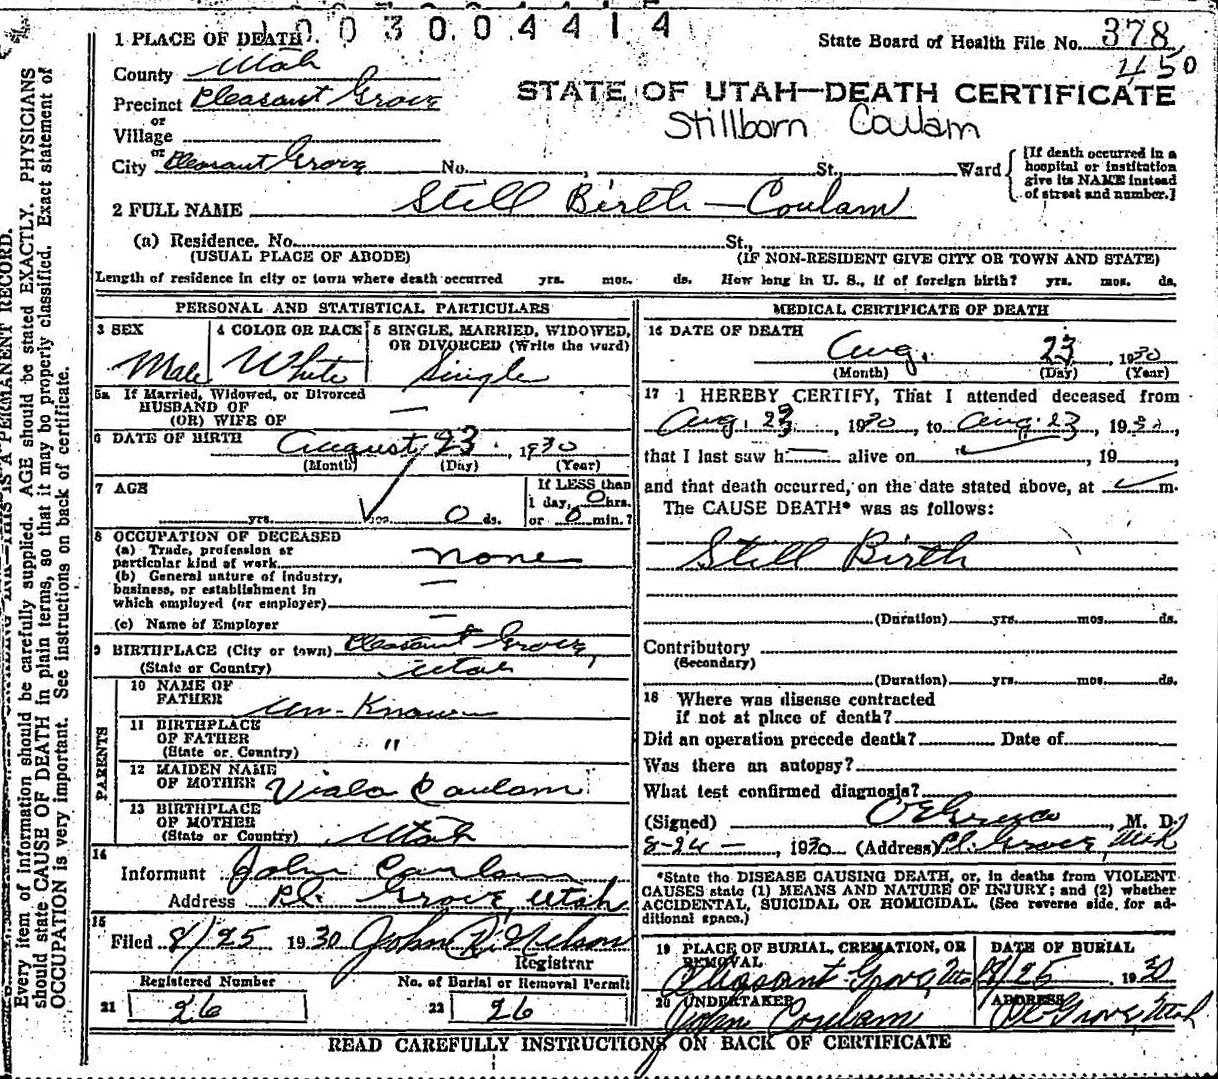 1003004414
1 PLACE OF DEATH
State Board of Health File No. 378
450
County Utah
STATE OF UTAH—DEATH CERTIFICATE
Precinct Pleasant Grove
or
Stillborn Coulam
Village
or
City Pleasant Grove No. , St., Ward
[If death occurred in a
hospital or institution
give its NAME instead
of street and number.]
2 FULL NAME Still Birth — Coulam
(a) Residence. No. St.,
(USUAL PLACE OF ABODE) (IF NON-RESIDENT GIVE CITY OR TOWN AND STATE)
Length of residence in city or town where death occurred yrs. mos. ds. How long in U. S., if of foreign birth? yrs. mos. ds.
PERSONAL AND STATISTICAL PARTICULARS
3 SEX
Male
4 COLOR OR RACE
White
5 SINGLE, MARRIED, WIDOWED,
OR DIVORCED (Write the word)
Single
5a If Married, Widowed, or Divorced
HUSBAND OF
(OR) WIFE OF —
6 DATE OF BIRTH August 23, 1930
(Month) (Day) (Year)
7 AGE
yrs. mos. 0 ds.
If LESS than
1 day, 0 hrs.
or 0 min.?
8 OCCUPATION OF DECEASED
(a) Trade, profession or
particular kind of work none
(b) General nature of industry,
business, or establishment in
which employed (or employer) —
(c) Name of Employer —
9 BIRTHPLACE (City or town) Pleasant Grove,
(State or Country) Utah
PARENTS
10 NAME OF
FATHER Un-Known
11 BIRTHPLACE
OF FATHER
(State or Country) "
12 MAIDEN NAME
OF MOTHER Viola Coulam
13 BIRTHPLACE
OF MOTHER
(State or Country) Utah
14
Informant John Coulam
Address Pl. Grove, Utah
15
Filed 8/25 1930 John R. Nelson
Registrar
Registered Number No. of Burial or Removal Permit
21 26 22 26
MEDICAL CERTIFICATE OF DEATH
16 DATE OF DEATH
Aug. 23, 1930
(Month) (Day) (Year)
17 I HEREBY CERTIFY, That I attended deceased from
Aug. 23, 1930, to Aug. 23, 1930,
that I last saw h— alive on , 19 ,
and that death occurred, on the date stated above, at m.
The CAUSE DEATH* was as follows:
Still Birth
(Duration) yrs. mos. ds.
Contributory
(Secondary)
(Duration) yrs. mos. ds.
18 Where was disease contracted
if not at place of death?
Did an operation precede death? Date of
Was there an autopsy?
What test confirmed diagnosis?
(Signed) , M. D.
8-24-, 1930 (Address) Pl. Grove, Utah
*State the DISEASE CAUSING DEATH, or, in deaths from VIOLENT
CAUSES state (1) MEANS AND NATURE OF INJURY; and (2) whether
ACCIDENTAL, SUICIDAL OR HOMICIDAL. (See reverse side for ad-
ditional space.)
19 PLACE OF BURIAL, CREMATION, OR
REMOVAL
Pleasant Grove, Utah
DATE OF BURIAL
8/25, 1930
20 UNDERTAKER
John Coulam
ADDRESS
Pl Grove, Utah
READ CAREFULLY INSTRUCTIONS ON BACK OF CERTIFICATE
THIS IS A PERMANENT RECORD.
Every item of information should be carefully supplied. AGE should be stated EXACTLY. PHYSICIANS
should state CAUSE OF DEATH in plain terms, so that it may be properly classified. Exact statement of
OCCUPATION is very important. See instructions on back of certificate.